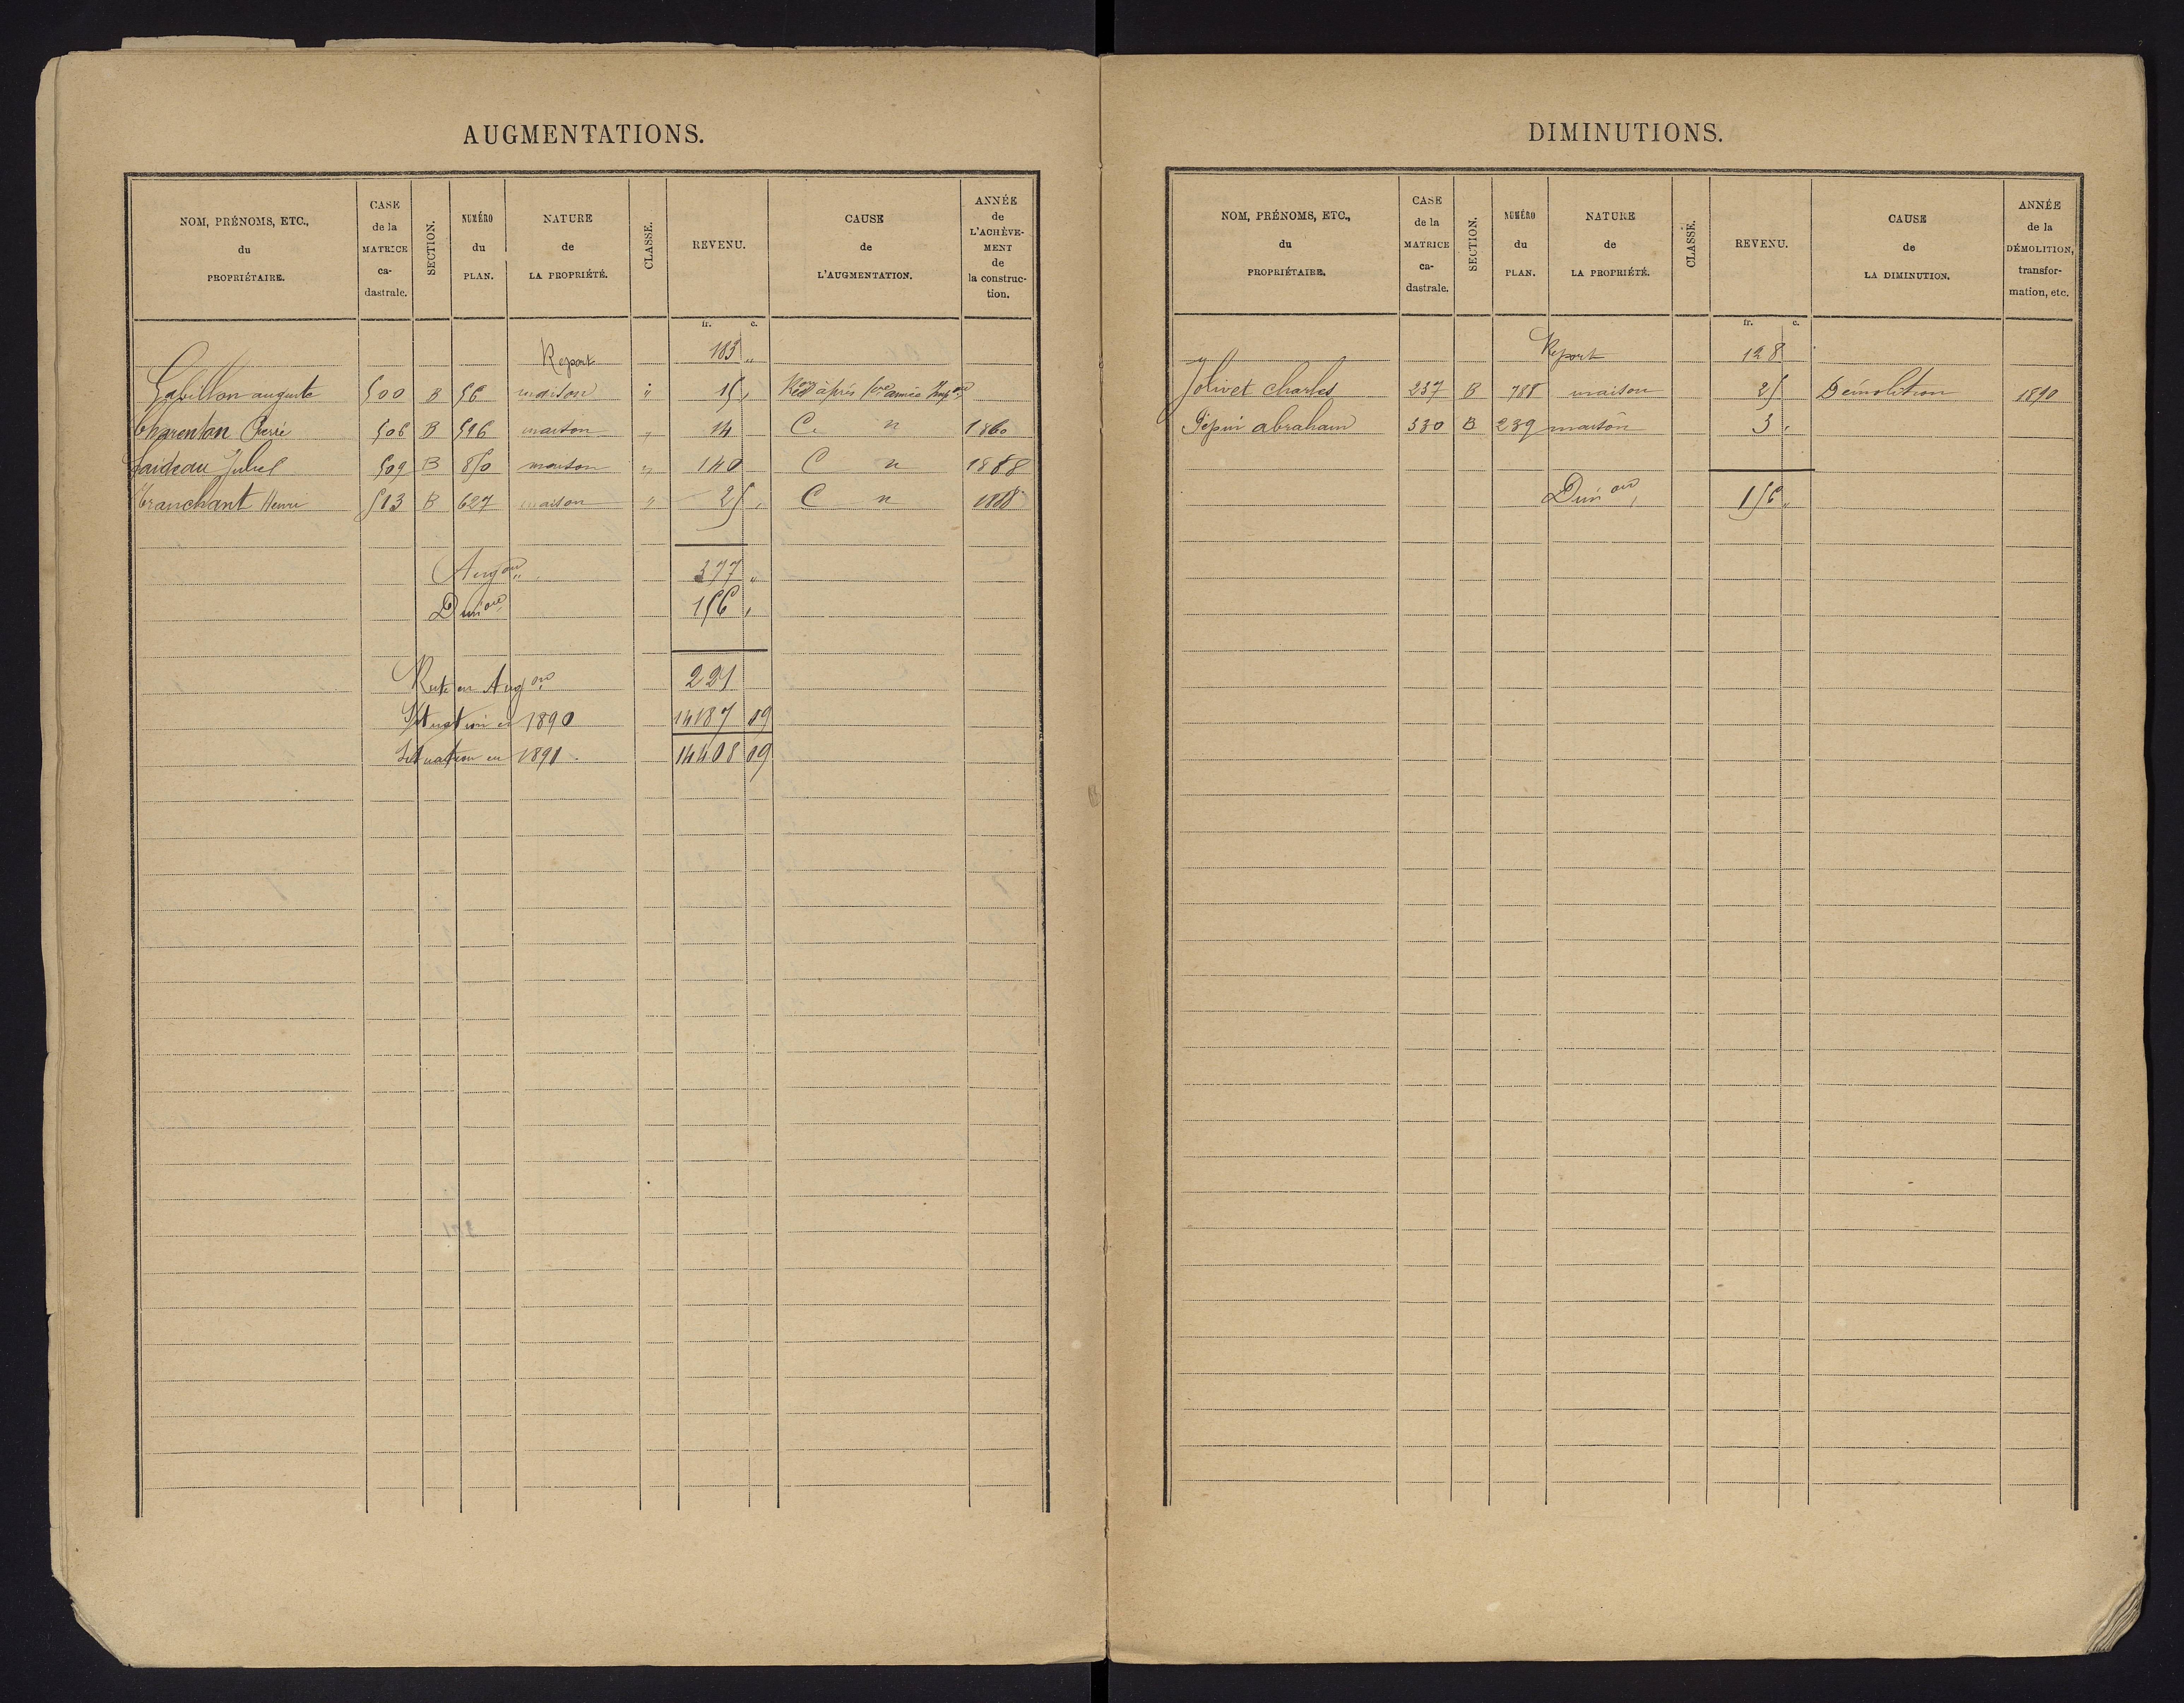 AUGMENTATIONS.
NOM, PRÉNOMS, ETC., du PROPRIÉTAIRE.
CASE de la MATRICE ca-dastrale.
SECTION.
NUMÉRO du PLAN.
NATURE de LA PROPRIÉTÉ.
CLASSE.
REVENU.
CAUSE de L'AUGMENTATION.
ANNÉE de L'ACHÈVE-MENT de la construc-tion.
fr. c.
Report 183 „
Gabillon auguste 500 B 56 maison „ 15 , après 1re année
Charenton Pierre 506 B 596 maison „ 14 C. n 1860
Jules 509 B 850 maison „ 140 C n 1888
Tranchant Henri 513 B 627 maison „ 25 , C n 1888
Augon 377 „
Dimon 156 ,
Reste en Augon 221
Situation en 1890 14187 09
Situation en 1891 14408 09
DIMINUTIONS.
NOM, PRÉNOMS, ETC., du PROPRIÉTAIRE.
CASE de la MATRICE ca-dastrale.
SECTION.
NUMÉRO du PLAN.
NATURE de LA PROPRIÉTÉ.
CLASSE.
REVENU.
CAUSE de LA DIMINUTION.
ANNÉE de la DÉMOLITION, transfor-mation, etc.
fr. c.
Report 128
Jolivet Charles 237 B 788 maison 25 Démolition 1890
Pépin abraham 330 B 239 maison 3 ,
Dimon 156 „